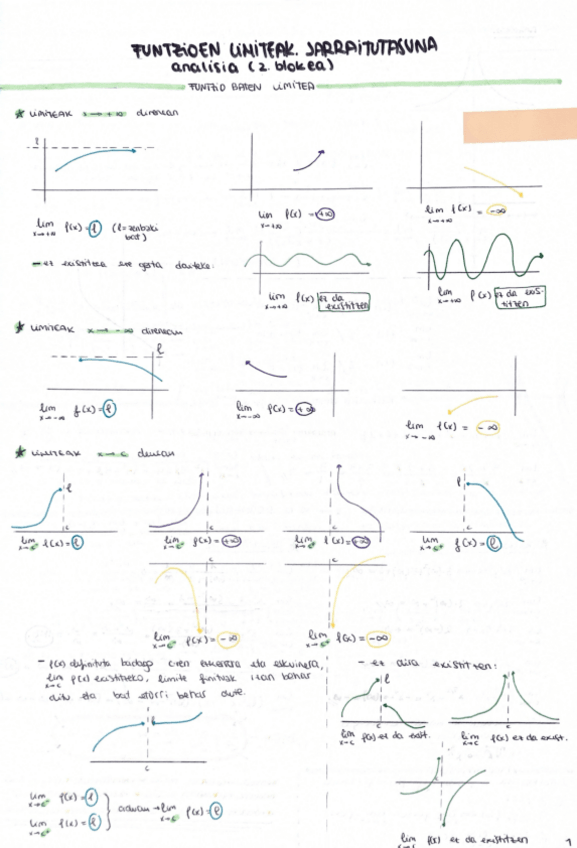 FUNTZIOEN LIMITEAK. JARRAITUTASUNA
analisia (2. blokea)
FUNTZIO BATEN LIMITEA
★ LIMITEAK x→+∞ direnean
l
lim f(x)=l (l=zenbaki bat)
x→+∞
lim f(x)=+∞
x→+∞
lim f(x)=-∞
x→+∞
- ez existitzea ere gerta daiteke:
lim f(x) ez da existitzen
x→+∞
lim f(x) ez da exis-
x→+∞ titzen
★ LIMITEAK x→-∞ direnean
l
lim f(x)=l
x→-∞
lim f(x)=+∞
x→-∞
lim f(x)=-∞
x→-∞
★ LIMITEAK x→c denean
l
c
lim f(x)=l
x→c⁻
c
lim f(x)=+∞
x→c⁻
c
lim f(x)=+∞
x→c⁺
l
c
lim f(x)=l
x→c⁺
c
lim f(x)=-∞
x→c⁻
c
lim f(x)=-∞
x→c⁺
- f(x) definituta badago c-ren ezkerrera eta eskuinera,
lim f(x) existitzeko, limite finituak izan behar
x→c
ditu eta bat etorri behar dute.
l
c
lim f(x)=l
x→c⁻
lim f(x)=l
x→c⁺
orduan → lim f(x)=l
x→c
- ez dira existitzen:
l
c
lim f(x) ez da exist.
x→c
c
lim f(x) ez da exist.
x→c
c
lim f(x) ez da existitzen
x→c
1